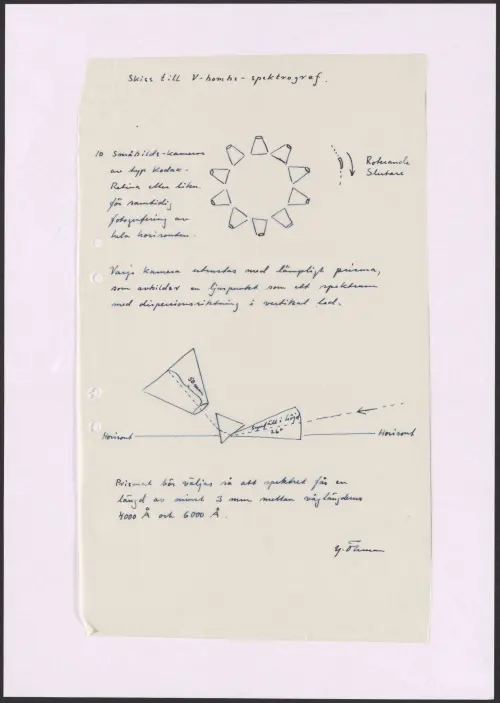 Skiss till V-bombs-spektrograf.
10 Småbilds-kameror
av typ Kodak-
Retina eller liken
för samtidig
fotografering av
hela horisonten.
Roterande
Slutare
Varje kamera utrustas med lämpligt prisma,
som avbildar en ljuspunkt som ett spektrum
med dispersionsriktning i vertikal led.
50 mm
synfält i höjd
26°
Horisont
Horisont
Prismat bör väljas så att spektret får en
längd av minst 3 mm mellan våglängderna
4000 Å och 6000 Å.
Y. Öhman